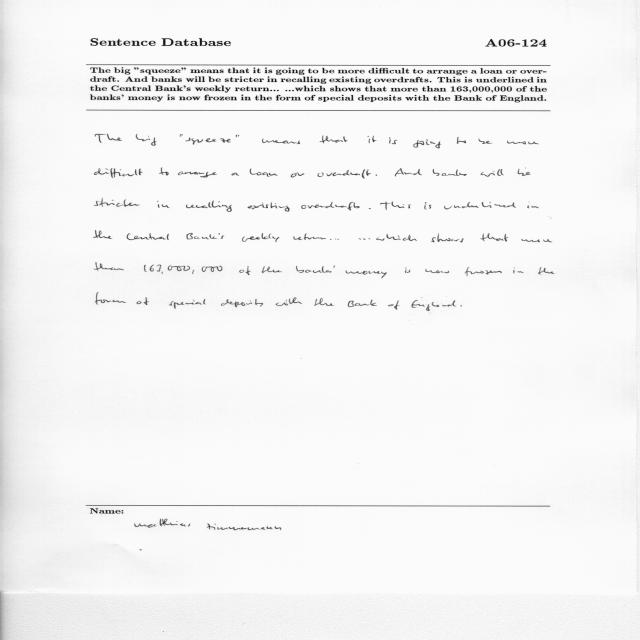 Sentence Database A06-124
The big "squeeze" means that it is going to be more difficult to arrange a loan or over-
draft. And banks will be stricter in recalling existing overdrafts. This is underlined in
the Central Bank's weekly return... ...which shows that more than 163,000,000 of the
banks' money is now frozen in the form of special deposits with the Bank of England.
The big "squeeze" means that it is going to be more
difficult to arrange a loan or overdraft. And banks will be
stricter in recalling existing overdrafts. This is underlined in
the Central Bank's weekly return... ...which shows that more
than 163,000,000 of the banks' money is now frozen in the
form of special deposits with the Bank of England.
Name:
matthias zimmermann